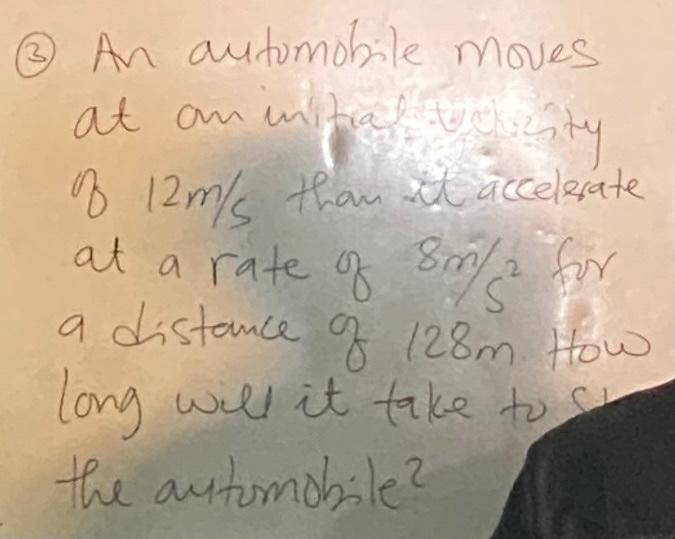 ③ An automobile moves
at an initial velocity
of 12m/s than it accelerate
at a rate of 8m/s² for
a distance of 128m. How
long will it take to
the automobile?